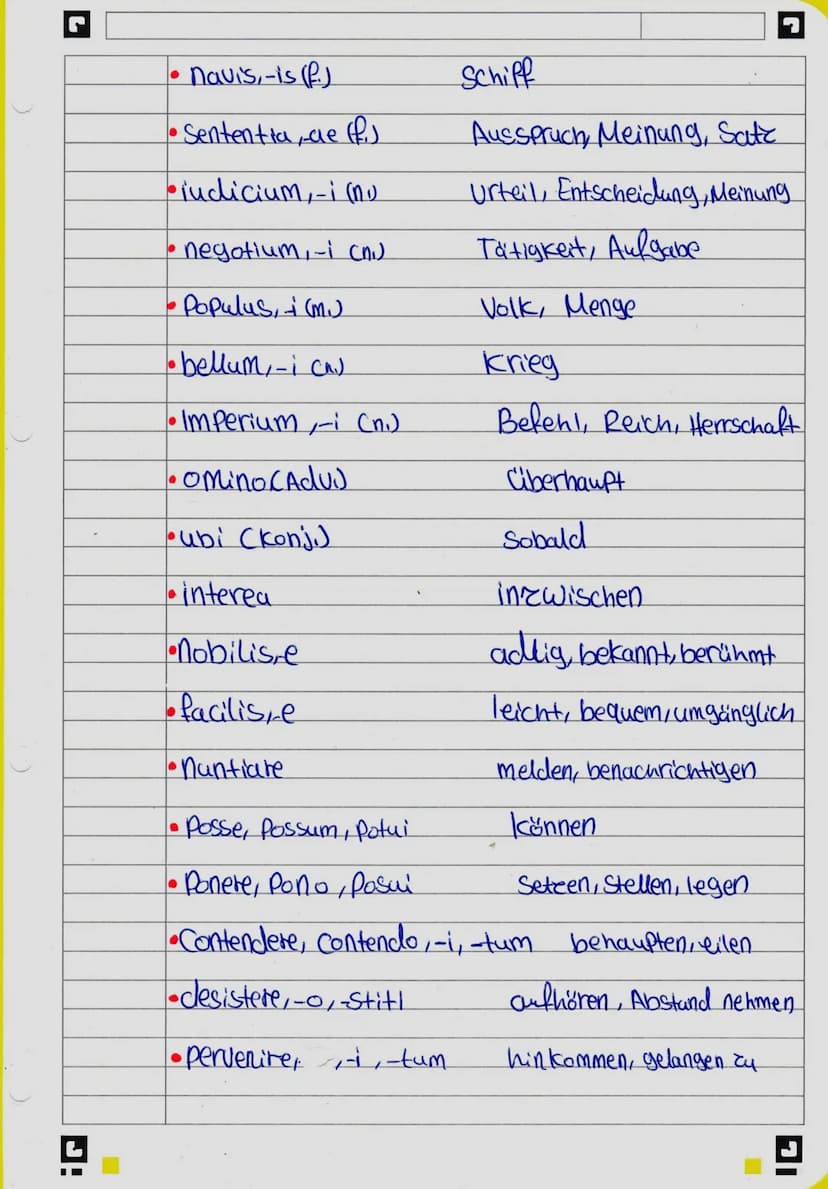 navis, -is (f.) Schiff
Sententia, -ae (f.) Ausspruch, Meinung, Satz
iudicium, -i (n.) Urteil, Entscheidung, Meinung
negotium, -i (n.) Tätigkeit, Aufgabe
Populus, -i (m.) Volk, Menge
bellum, -i (n.) Krieg
Imperium, -i (n.) Befehl, Reich, Herrschaft
omino (Adv.) überhaupt
ubi (Konj.) sobald
interea inzwischen
nobilis, -e adlig, bekannt, berühmt
facilis, -e leicht, bequem, umgänglich
nuntiare melden, benachrichtigen
Posse, Possum, Potui können
Ponere, Pono, Posui Setzen, Stellen, legen
Contendere, Contendo, -i, -tum behaupten, eilen
desistere, -o, -stiti aufhören, Abstand nehmen
pervenire, , -i, -tum hinkommen, gelangen zu